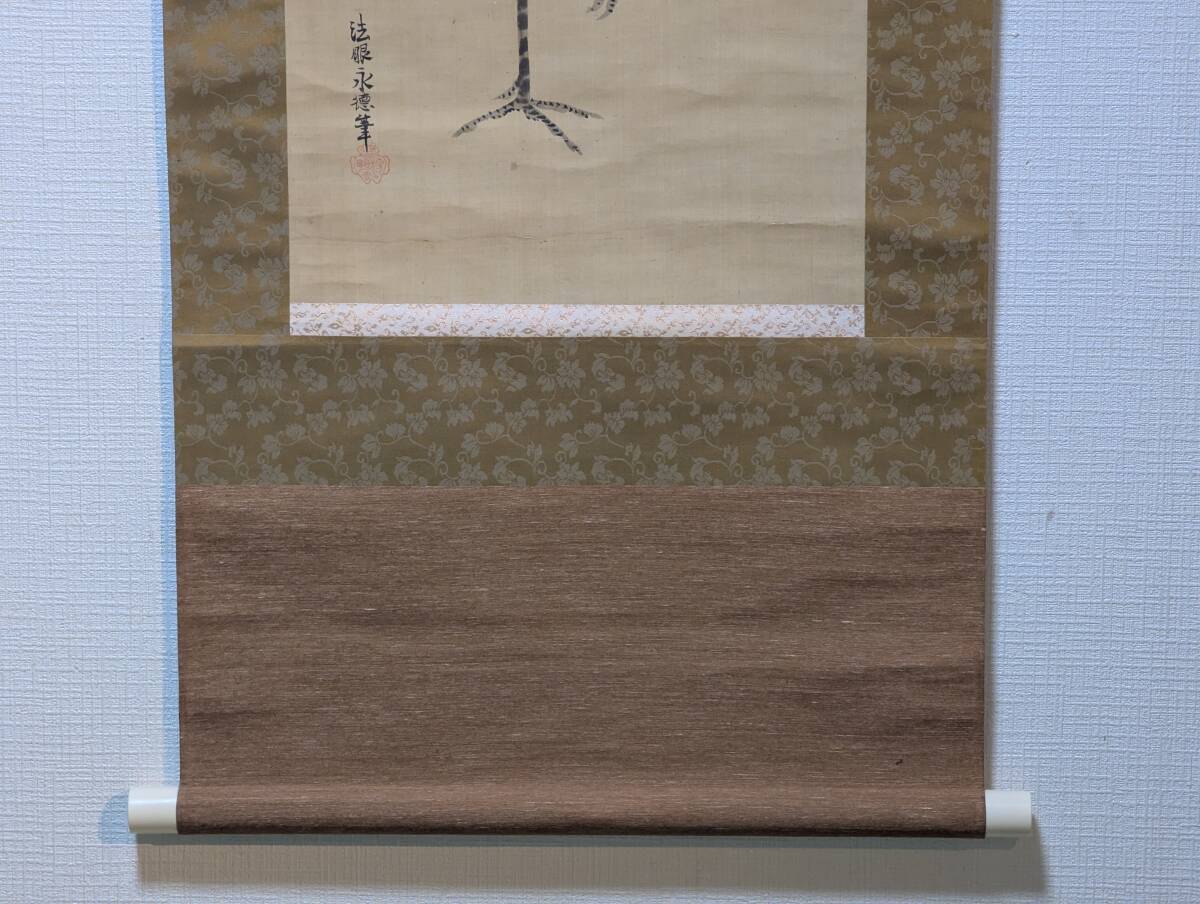 法眼永德筆